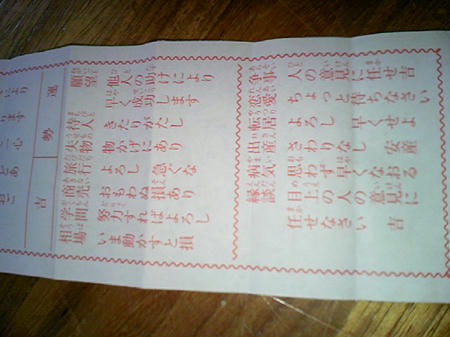 運勢 吉
願望 他人の助けにより
早く成功します
待人 きたりがたし
失物 物かげにあり
旅行 よろし 急ぐな
商売 おもわぬ損あり
学問 努力すればよろし
相場 いま動かすと損
争事 人の意見に任せ吉
恋愛 ちょっと待ちなさい
転居 よろし 早くせよ
出産 さわりなし 安産
病気 思わず早くなおる
縁談 目上の人の意見に
任せなさい 吉